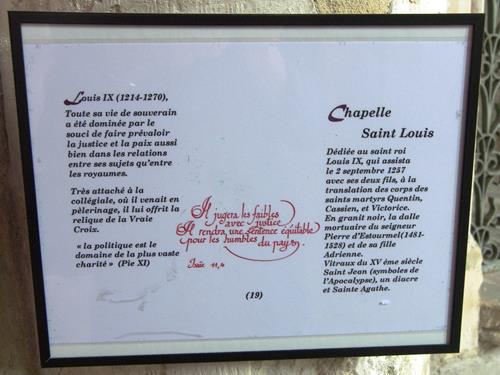 Louis IX (1214-1270),
Toute sa vie de souverain
a été dominée par le
souci de faire prévaloir
la justice et la paix aussi
bien dans les relations
entre ses sujets qu'entre
les royaumes.
Très attaché à la
collégiale, où il venait en
pèlerinage, il lui offrit la
relique de la Vraie
Croix.
« la politique est le
domaine de la plus vaste
charité » (Pie XI)
Il jugera les faibles
avec justice
Il rendra une sentence équitable
pour les humbles du pays.
Isaïe 11,4
(19)
Chapelle
Saint Louis
Dédiée au saint roi
Louis IX, qui assista
le 2 septembre 1257
avec ses deux fils, à la
translation des corps des
saints martyrs Quentin,
Cassien, et Victorice.
En granit noir, la dalle
mortuaire du seigneur
Pierre d'Estourmel(1481-
1528) et de sa fille
Adrienne.
Vitraux du XV éme siècle
Saint Jean (symboles de
l'Apocalypse), un diacre
et Sainte Agathe.